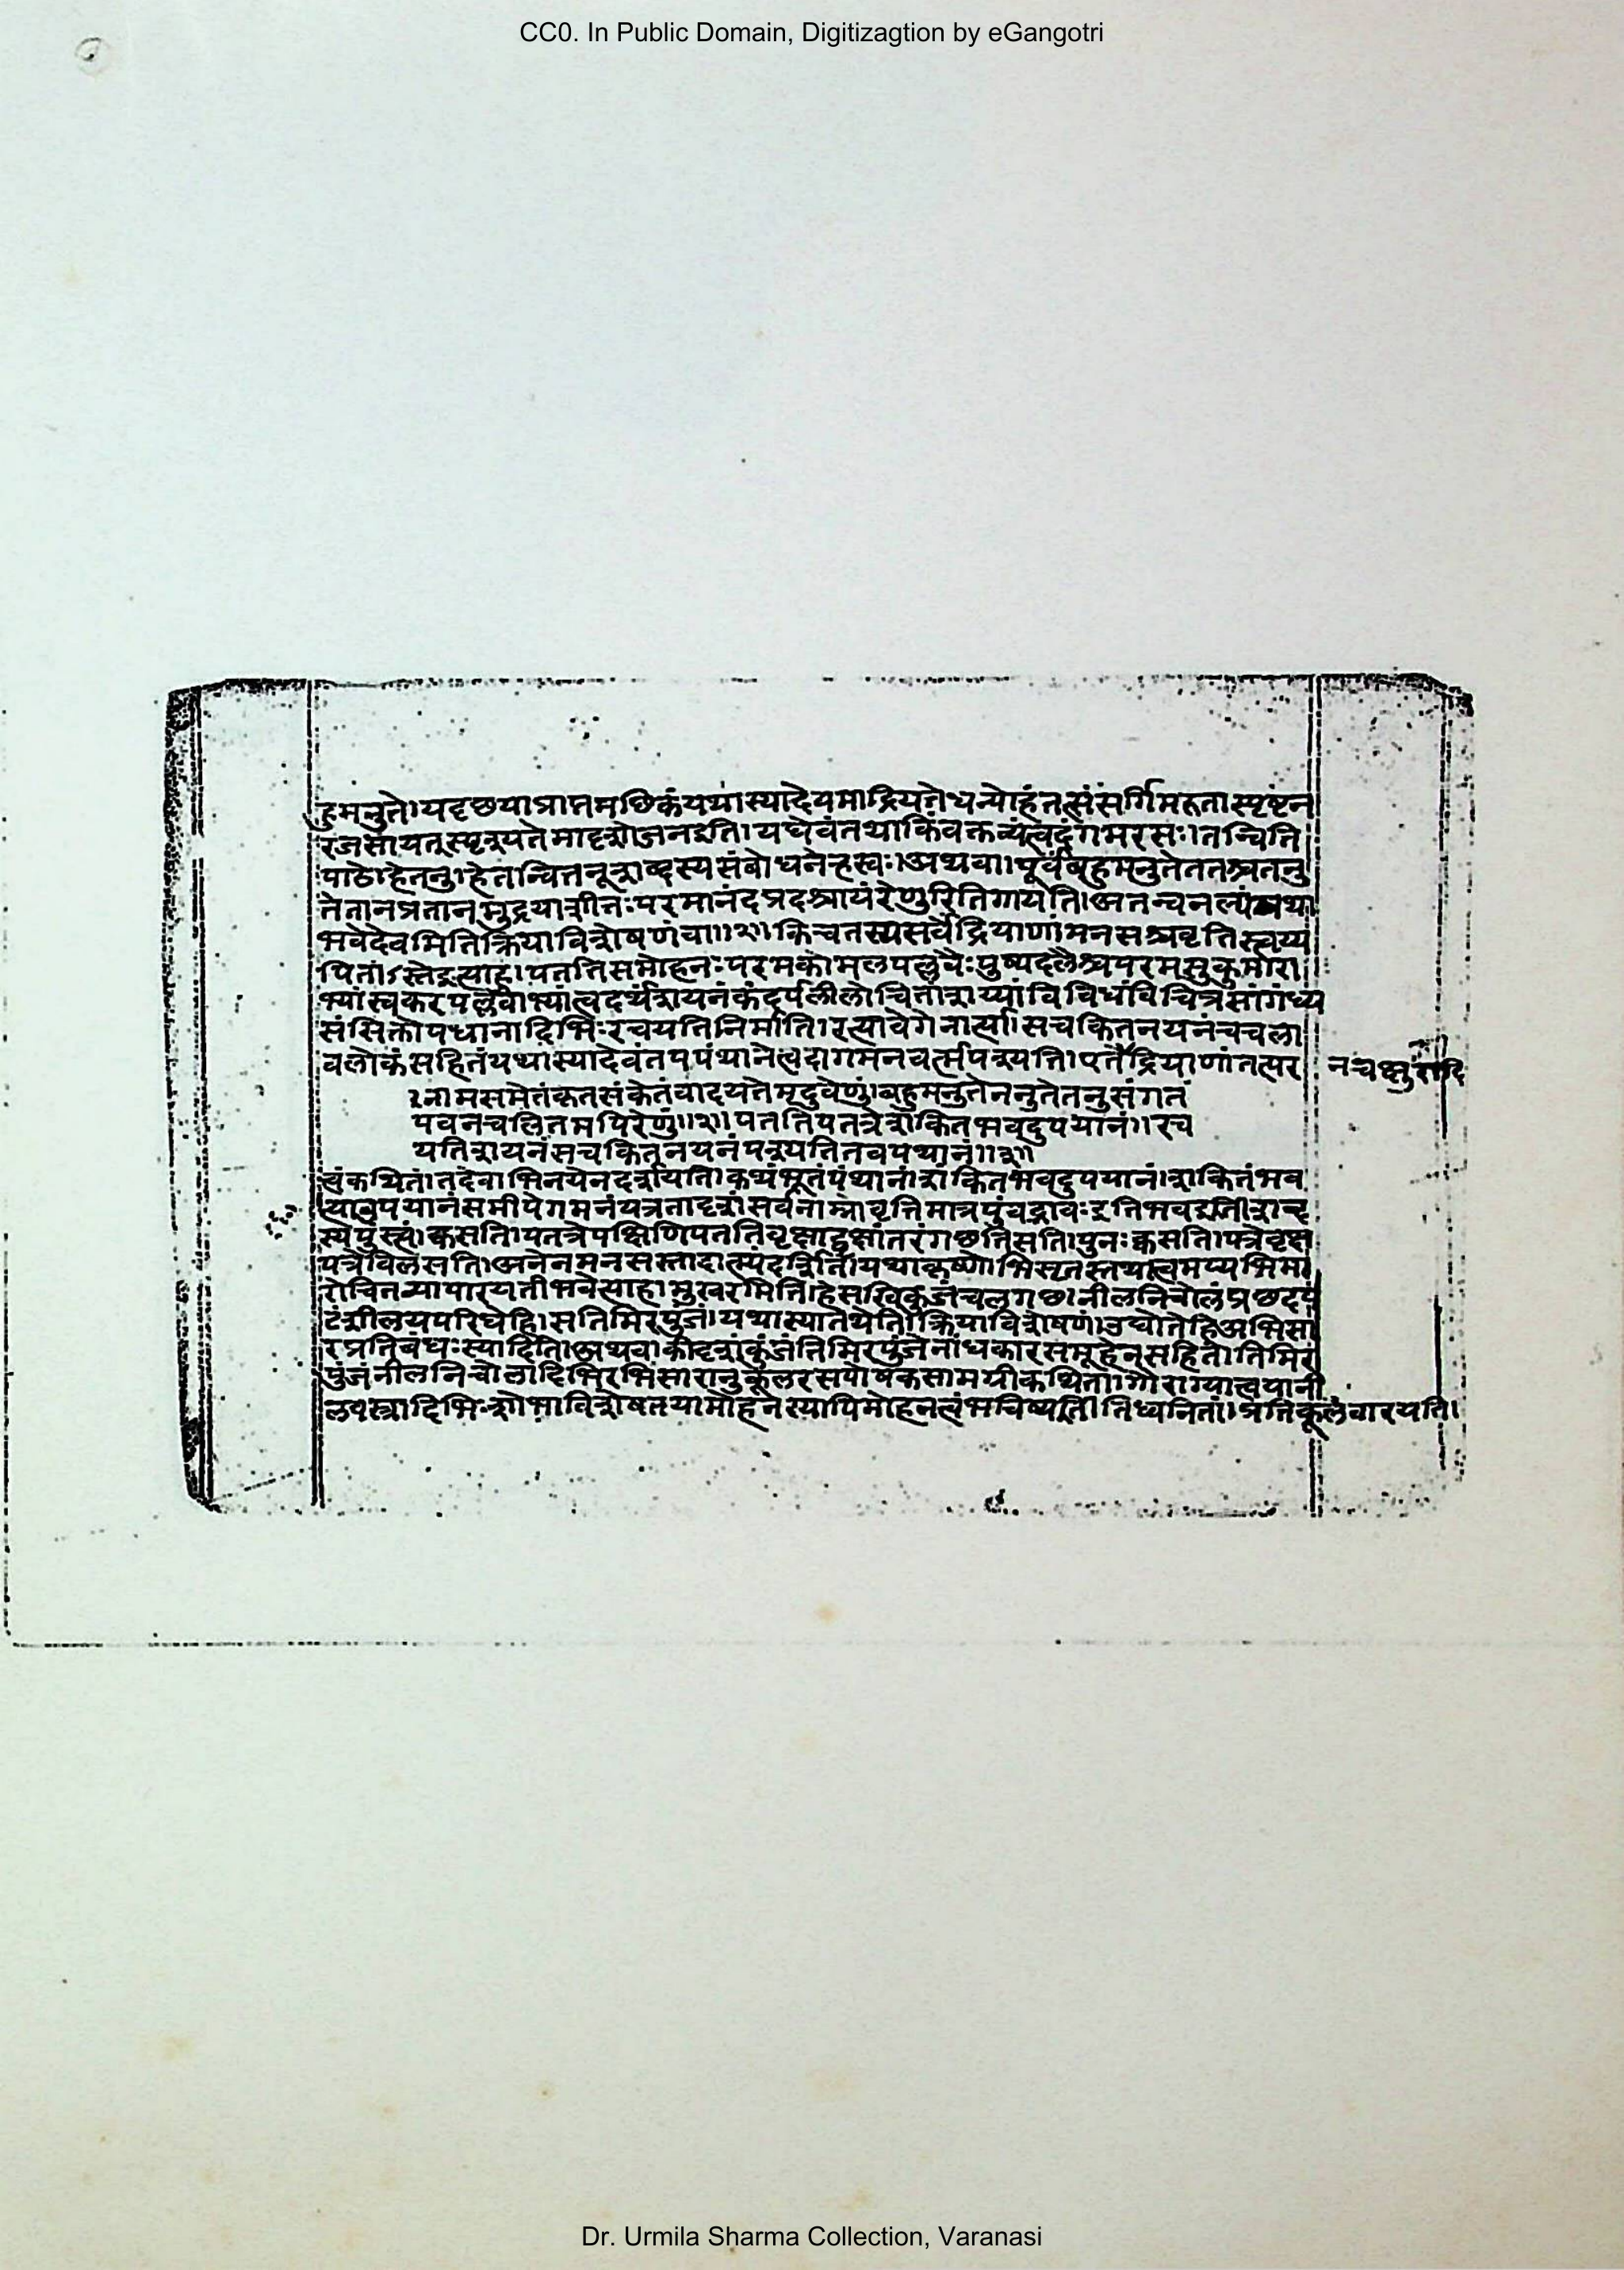 CC0. In Public Domain, Digitizagtion by eGangotri
हुमनुते।यदृछयाप्राप्तमधिकंयथास्यादेवमाद्रियतेधन्योहंतत्संसर्गिमरुतास्पृष्टेन
रजसायत्स्पृश्यतेमादृशोजनइति।यद्येवंतथाकिंवक्तव्यंत्वदंगमरसः।तन्विति
पाठे।हेतनु।हेतान्वितनूशब्दस्यसंबोधनेह्रस्वः।अथवा।पूर्वंबहुमनुतेततश्चतनु
तेतानप्रतानमुद्रयाशीतःपरमानंदप्रदश्चायंरेणुरितिगायति।अतन्वनल्पंयथा
भवेदेवमितिक्रियाविशेषणंवा॥२॥किंचतस्यसर्वेंद्रियाणांमनसश्चवृत्तिस्त्वय्य
र्पिताऽस्तेइत्याह।पततिसमोहनःपरमकोमलपल्लवैःपुष्पदलैश्चपरमसुकुमारा
भ्यांस्वकरपल्लवाभ्यांत्वदर्थंशयनंकंदर्पलीलोचितांशय्यांविविधांविचित्रसांगंध्य
संसिक्तोपधानादिभिःरचयतिनिर्माति।रत्यावेगेनार्त्या।सचकितनयनंचचला
वलोकंसहितंयथास्यादेवंतवपंथानंत्वदागमनवर्त्मपश्यति।एतैंद्रियाणांतत्पर नचक्षुरादि
नामसमेतंकृतसंकेतंवादयतेमृदुवेणुं।बहुमनुतेननुतेतनुसंगतं
पवनचलितमपिरेणुं॥२॥पततिपतत्रेशंकितभवदुपयानं॥रच
यतिशयनंसचकितनयनंपश्यतितवपंथानं॥३॥
त्वंकथितं।तदेवाभिनयेनदर्शयति।कथंभूतंपंथानं।शंकितभवदुपयानं।शंकितंभव
त्याउपयानंसमीपेगमनंयत्रतादृशं।सर्वनाम्नोवृत्तिमात्रपुंवद्भावःइतिभवइतिशब्द
स्यपुंस्त्वं।कसति।पतत्रेपक्षिणिपततिवृक्षाद्वृक्षांतरंगछतिसति।पुनःकसति।पत्रेवृक्ष
पत्रेविलसति।अनेनमनसस्तादात्म्यंदर्शितं।यथाकृष्णोभिसृतस्तथात्वमप्यभिमा
रोचितव्यापारयतीभवेत्याह।मुखरमिति।हेसखिकुंजंचलगछ।नीलनिचोलंप्रछदप
टंशीलयपरिधेहि।सतिमिरपुंजं।यथास्यात्तथेति।क्रियाविशेषणं।उद्योतेहिअभिसा
रप्रतिबंधःस्यादिति।अथवा।कीदृशंकुंजंतिमिरपुंजेनांधकारसमूहेनसहितं।तिमिर
पुंजनीलनिचोलादिभिरभिसारानुकूलरसपोषकसामग्रीकथिता।गौराग्यात्वयानी
लवस्त्रादिभिःशोभाविशेषतयामोहनस्यापिमोहनत्वंभविष्यतीतिध्वनितं।प्रतिकूलंवारयति।
Dr. Urmila Sharma Collection, Varanasi